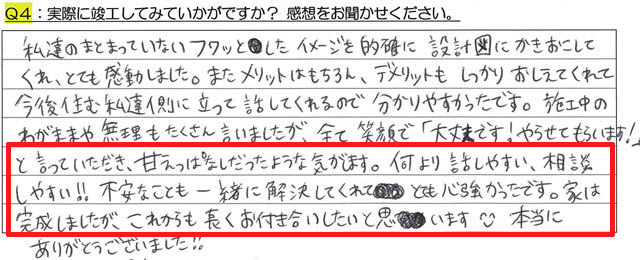 Q4：実際に竣工してみていかがですか？ 感想をお聞かせください。
私達のまとまっていないフワッとした イメージを的確に 設計図にかきおこして
くれ、とても感動しました。またメリットはもちろん、デメリットも しっかりおしえてくれて
今後住む私達側に立って 話してくれるので 分かりやすかったです。施工中の
わがままや無理もたくさん言いましたが、全て 笑顔で「大丈夫です！やらせてもらいます！」
と言っていただき、甘えっぱなしだったような気がます。何より 話しやすい、相談
しやすい!! 不安なことも 一緒に解決してくれ とても心強かったです。家は
完成しましたが、これからも 長くお付き合いしたいと思います 本当に
ありがとうございました!!